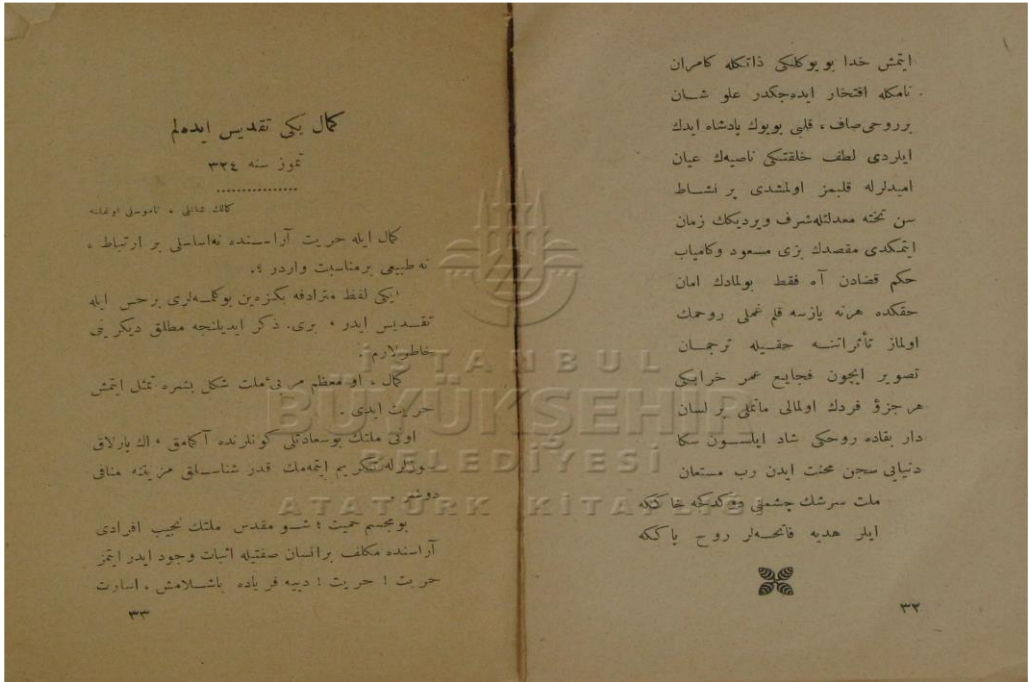 ایتمش خدا بویوكلكی ذاتكله كامران
نامكله افتخار ایده‌جكدر علو شان
برروحی صاف ، قلبی بویوك پادشاه ایدك
ایلردی لطف خلقتكی ناصیه‌ك عیان
امیدلرله قلبمز اولمشدی پر نشاط
سن تخته معدلتله شرف ویردیكك زمان
ایتمكدی مقصدك بزی مسعود وكامیاب
حكم قضادن آه فقط بولمادك امان
حقكده هرنه یازسه قلم غملی روحمك
اولماز تأثراتنه حقیله ترجمان
تصویر ایچون فجایع عمر خرابكی
هر جزؤ فردك اولمالی ماتملی بر لسان
دار بقاده روحكی شاد ایلسون سكا
دنیایی سجن محنت ایدن رب مستعان
ملت سرشك چشمنی دوكدكجه خاككه
ایلر هدیه فاتحه‌لر روح پاككه
٣٢
كمال بكی تقدیس ایده‌لم
تموز سنه ٣٢٤
كمالك شانلی ، ناموسلی اوغلنه
كمال ایله حریت آراسنده نه‌اساسلی بر ارتباط ،
نه طبیعی برمناسبت واردر ؟.
ایكی لفظ مترادفه بكزه‌ین بوكلمه‌لری برحس ایله
تقدیس ایدر ، بری. ذكر ایدیلنجه مطلق دیكرینی
خاطرلارم .
كمال ، او معظم مربیٔ ملت شكل بشره تمثل ایتمش
حریت ایدی .
اونی ملتك بوسعادتلی كونلرنده آكمامق ، اك پارلاق
سوزلرله تكریم ایتمه‌مك قدر شناسلق مزیتنه منافی
دوشر .
بومجسم حمیت ؛ شو مقدس ملتك نجیب افرادی
آراسنده مكلف برانسان صفتیله اثبات وجود ایدر ایتمز
حریت ! حریت ! دییه فریاده باشلامش . اسارت
٣٣
İSTANBUL
BÜYÜKŞEHİR
BELEDİYESİ
ATATÜRK KİTAPLIĞI